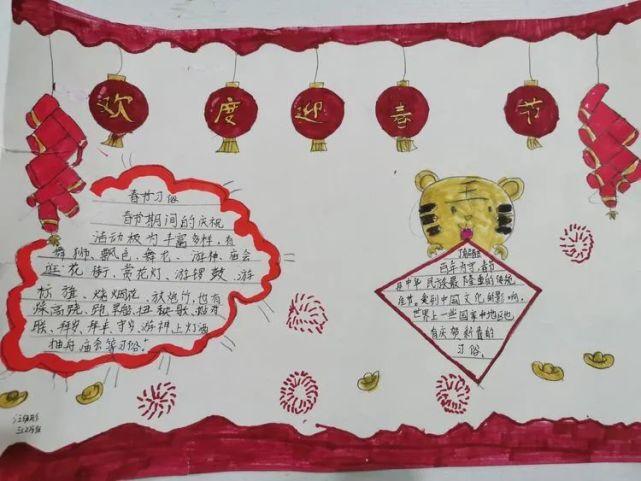 欢度迎春节
春节习俗
春节期间的庆祝
活动极为丰富多样，有
舞狮、飘色、舞龙、游神、庙会
逛花街、赏花灯、游锣鼓、游
标旗、烧烟花、放炮竹，也有
踩高跷、跑旱船、扭秧歌、
联、拜岁、拜年、守岁、游神、上灯酒
庙会等习俗。
百年守守，春节
是中华民族最隆重的传统
佳节。受到中国文化的影响，
世界上一些国家和地区也
有庆贺新春的
习俗。